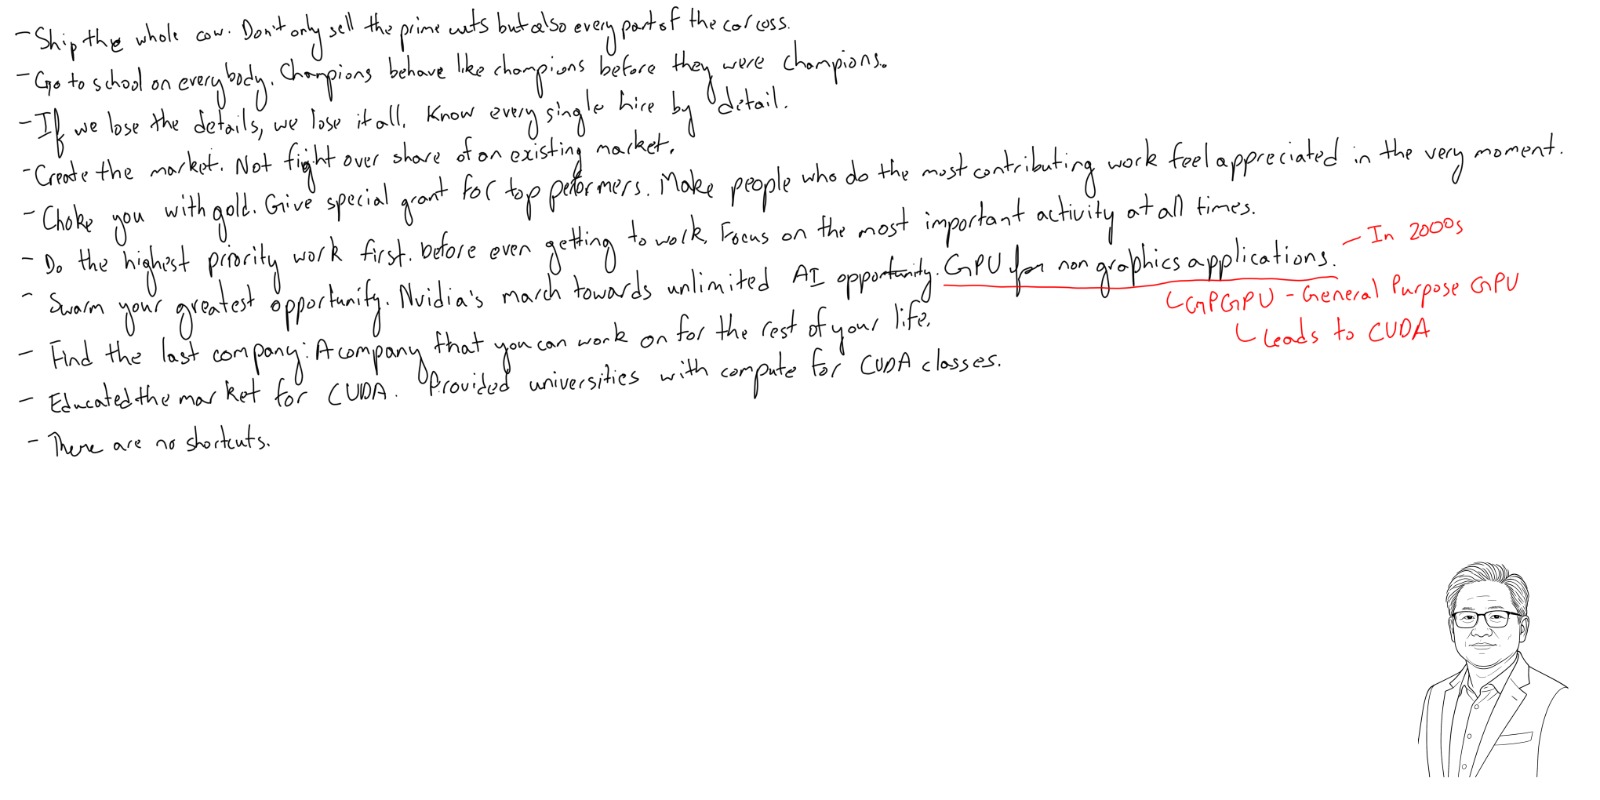 - Ship the whole cow. Don't only sell the prime cuts but also every part of the carcass.
- Go to school on everybody. Champions behave like champions before they were champions.
- If we lose the details, we lose it all. Know every single hire by detail.
- Create the market. Not fight over share of an existing market.
- Choke you with gold. Give special grant for top performers. Make people who do the most contributing work feel appreciated in the very moment.
- Do the highest priority work first. before even getting to work. Focus on the most important activity at all times.
- Swarm your greatest opportunity. Nvidia's march towards unlimited AI opportunity. GPU for non graphics applications.
- In 2000s
GPGPU - General Purpose GPU
Leads to CUDA
- Find the last company: A company that you can work on for the rest of your life.
- Educated the market for CUDA. Provided universities with compute for CUDA classes.
- There are no shortcuts.